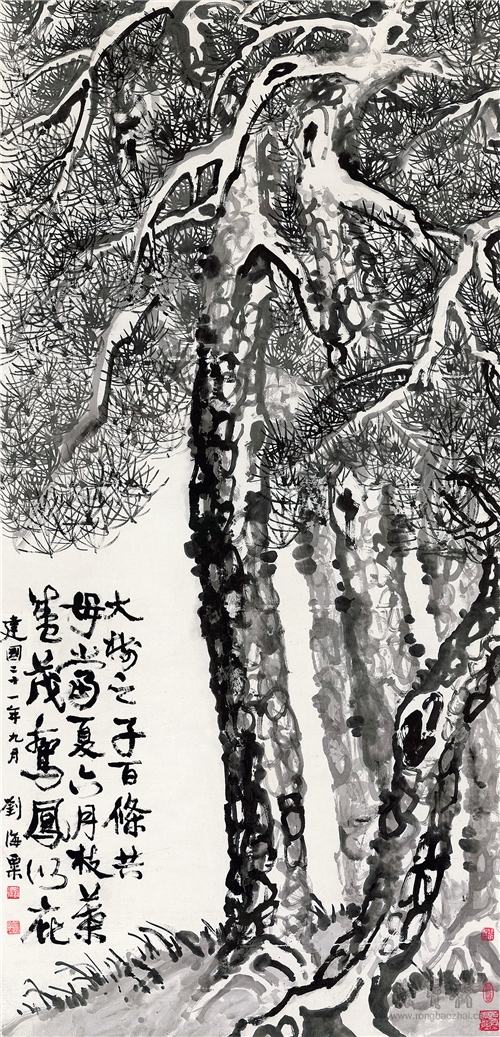 大樹之子百條共
母當夏六月枝葉
盛茂鸞鳳以庇
建國三十一年九月 劉海粟
www.rongbaozhai.cn